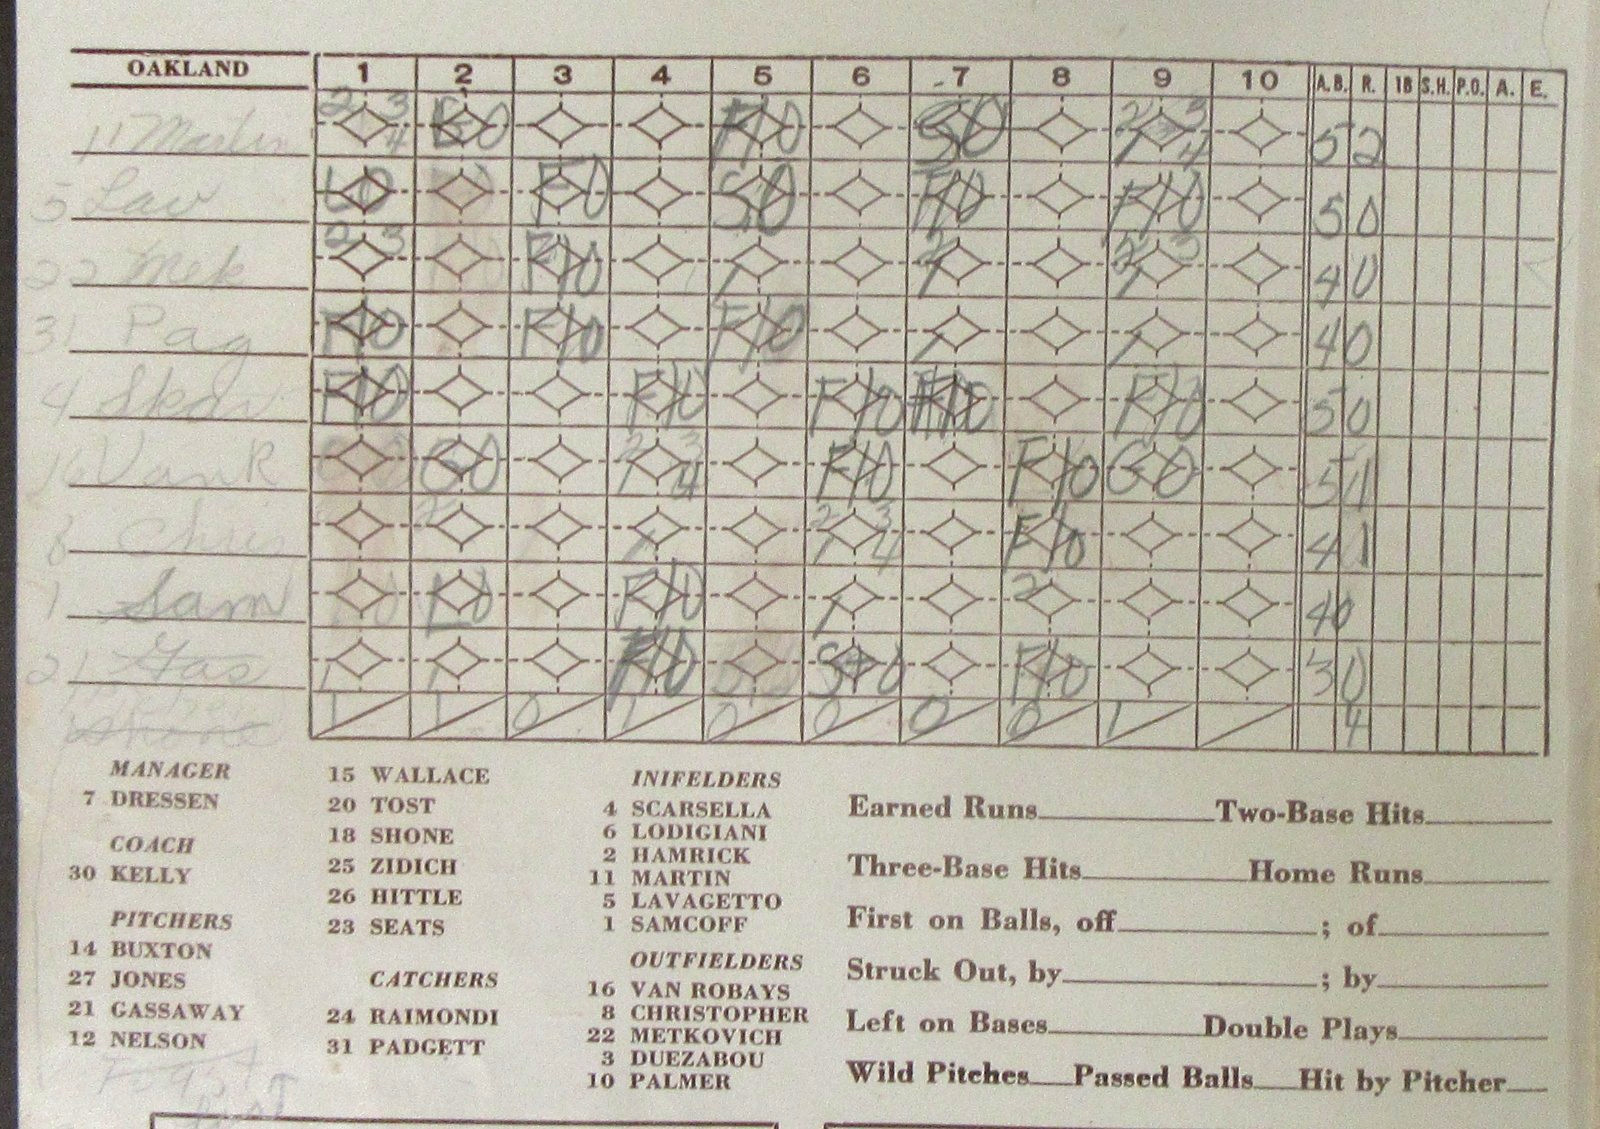 OAKLAND 1 2 3 4 5 6 7 8 9 10 A.B. R. 1B S.H. P.O. A. E.
11 Martin 2 3 4 GO F/O SO 2 3 1 4 5 2
5 Lav LO F/O SO F/O F/O 5 0
22 Mek 2 3 F/O 1 2 1 2 3 1 4 0
31 Pag F/O F/O F/O 1 1 4 0
4 Skar F/O F/O F/O F/O F/O 5 0
16 Vank GO 2 3 1 4 F/O F/O GO 5 1
8 Chris 1 2 3 1 4 F/O 4 1
1 Sam LO F/O 1 2 4 0
21 Gas F/O S+O F/O 3 0
Shone 1 1 0 1 0 0 0 0 1 4
MANAGER
7 DRESSEN
COACH
30 KELLY
PITCHERS
14 BUXTON
27 JONES
21 GASSAWAY
12 NELSON
15 WALLACE
20 TOST
18 SHONE
25 ZIDICH
26 HITTLE
23 SEATS
CATCHERS
24 RAIMONDI
31 PADGETT
INIFELDERS
4 SCARSELLA
6 LODIGIANI
2 HAMRICK
11 MARTIN
5 LAVAGETTO
1 SAMCOFF
OUTFIELDERS
16 VAN ROBAYS
8 CHRISTOPHER
22 METKOVICH
3 DUEZABOU
10 PALMER
Earned Runs Two-Base Hits
Three-Base Hits Home Runs
First on Balls, off ; of
Struck Out, by ; by
Left on Bases Double Plays
Wild Pitches Passed Balls Hit by Pitcher